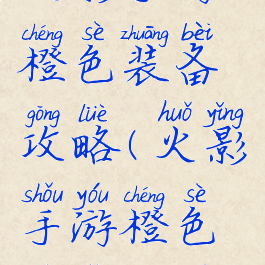 chéng sè zhuāng bèi
橙色装备
gōng lüè huǒ yǐng
攻略(火影
shǒu yóu chéng sè
手游橙色